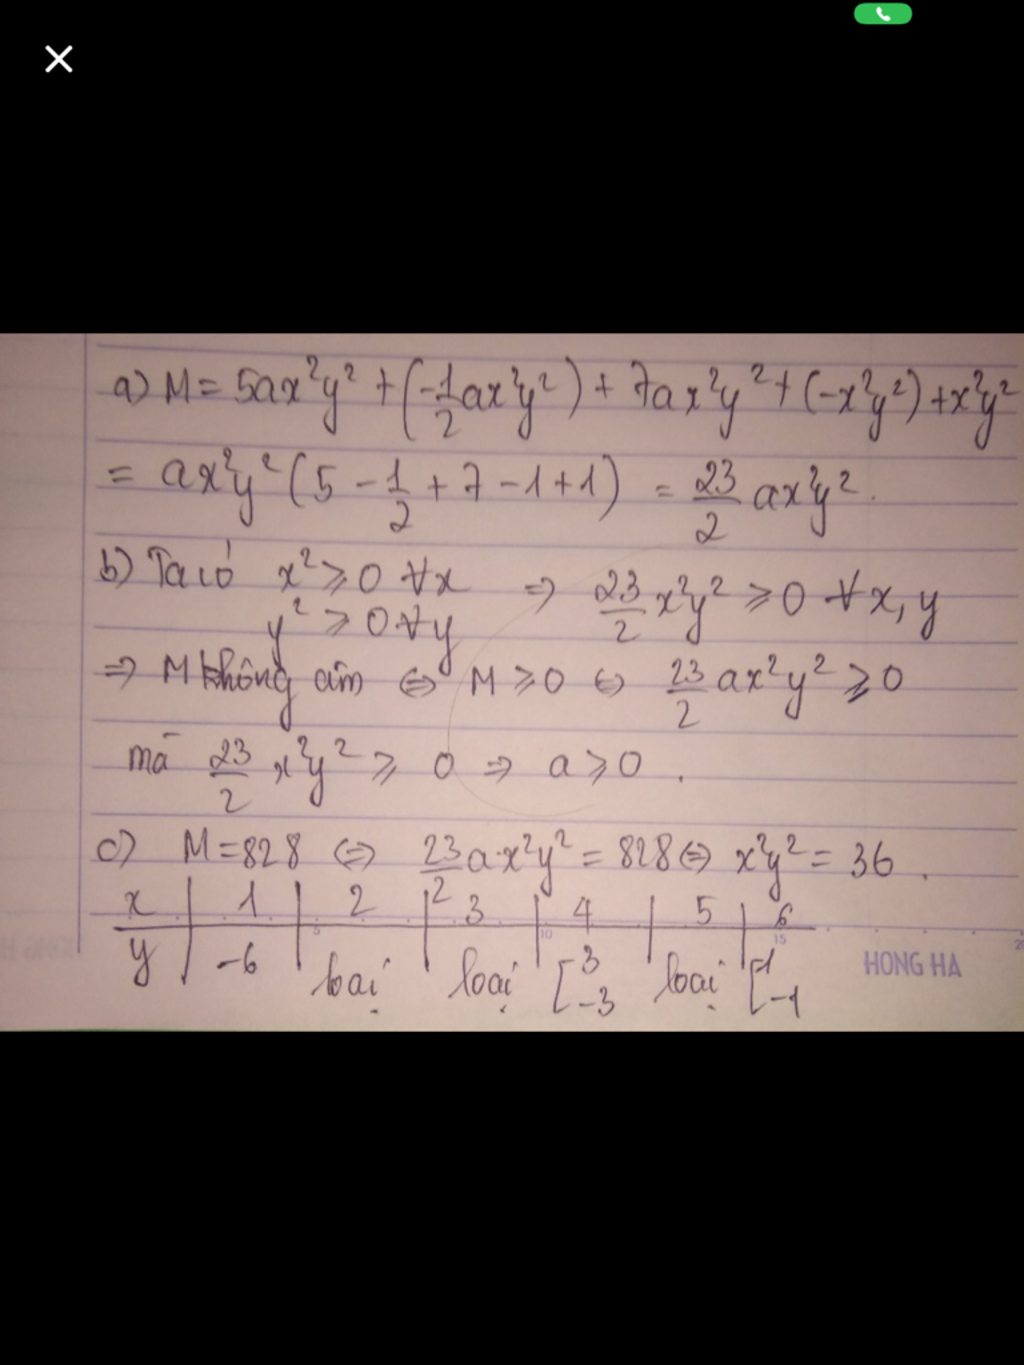 a) M = 5ax²y² + (-1/2 ax²y²) + 7ax²y² + (-x²y²) + x²y²
= ax²y² (5 - 1/2 + 7 - 1 + 1) = 23/2 ax²y².
b) Ta có x² ⩾ 0 ∀x ⇒ 23/2 x²y² ⩾ 0 ∀x, y
y² ⩾ 0 ∀y
⇒ M không âm ⇔ M ⩾ 0 ⇔ 23/2 ax²y² ⩾ 0
mà 23/2 x²y² ⩾ 0 ⇒ a ⩾ 0.
c) M = 828 ⇔ 23/2 a·x²y² = 828 ⇔ x²y² = 36.
x | 1 | 2 | 3 | 4 | 5 | 6
y | -6 | loại | loại | [3 -3 | loại | [1 -1
5 10 15
HONG HA